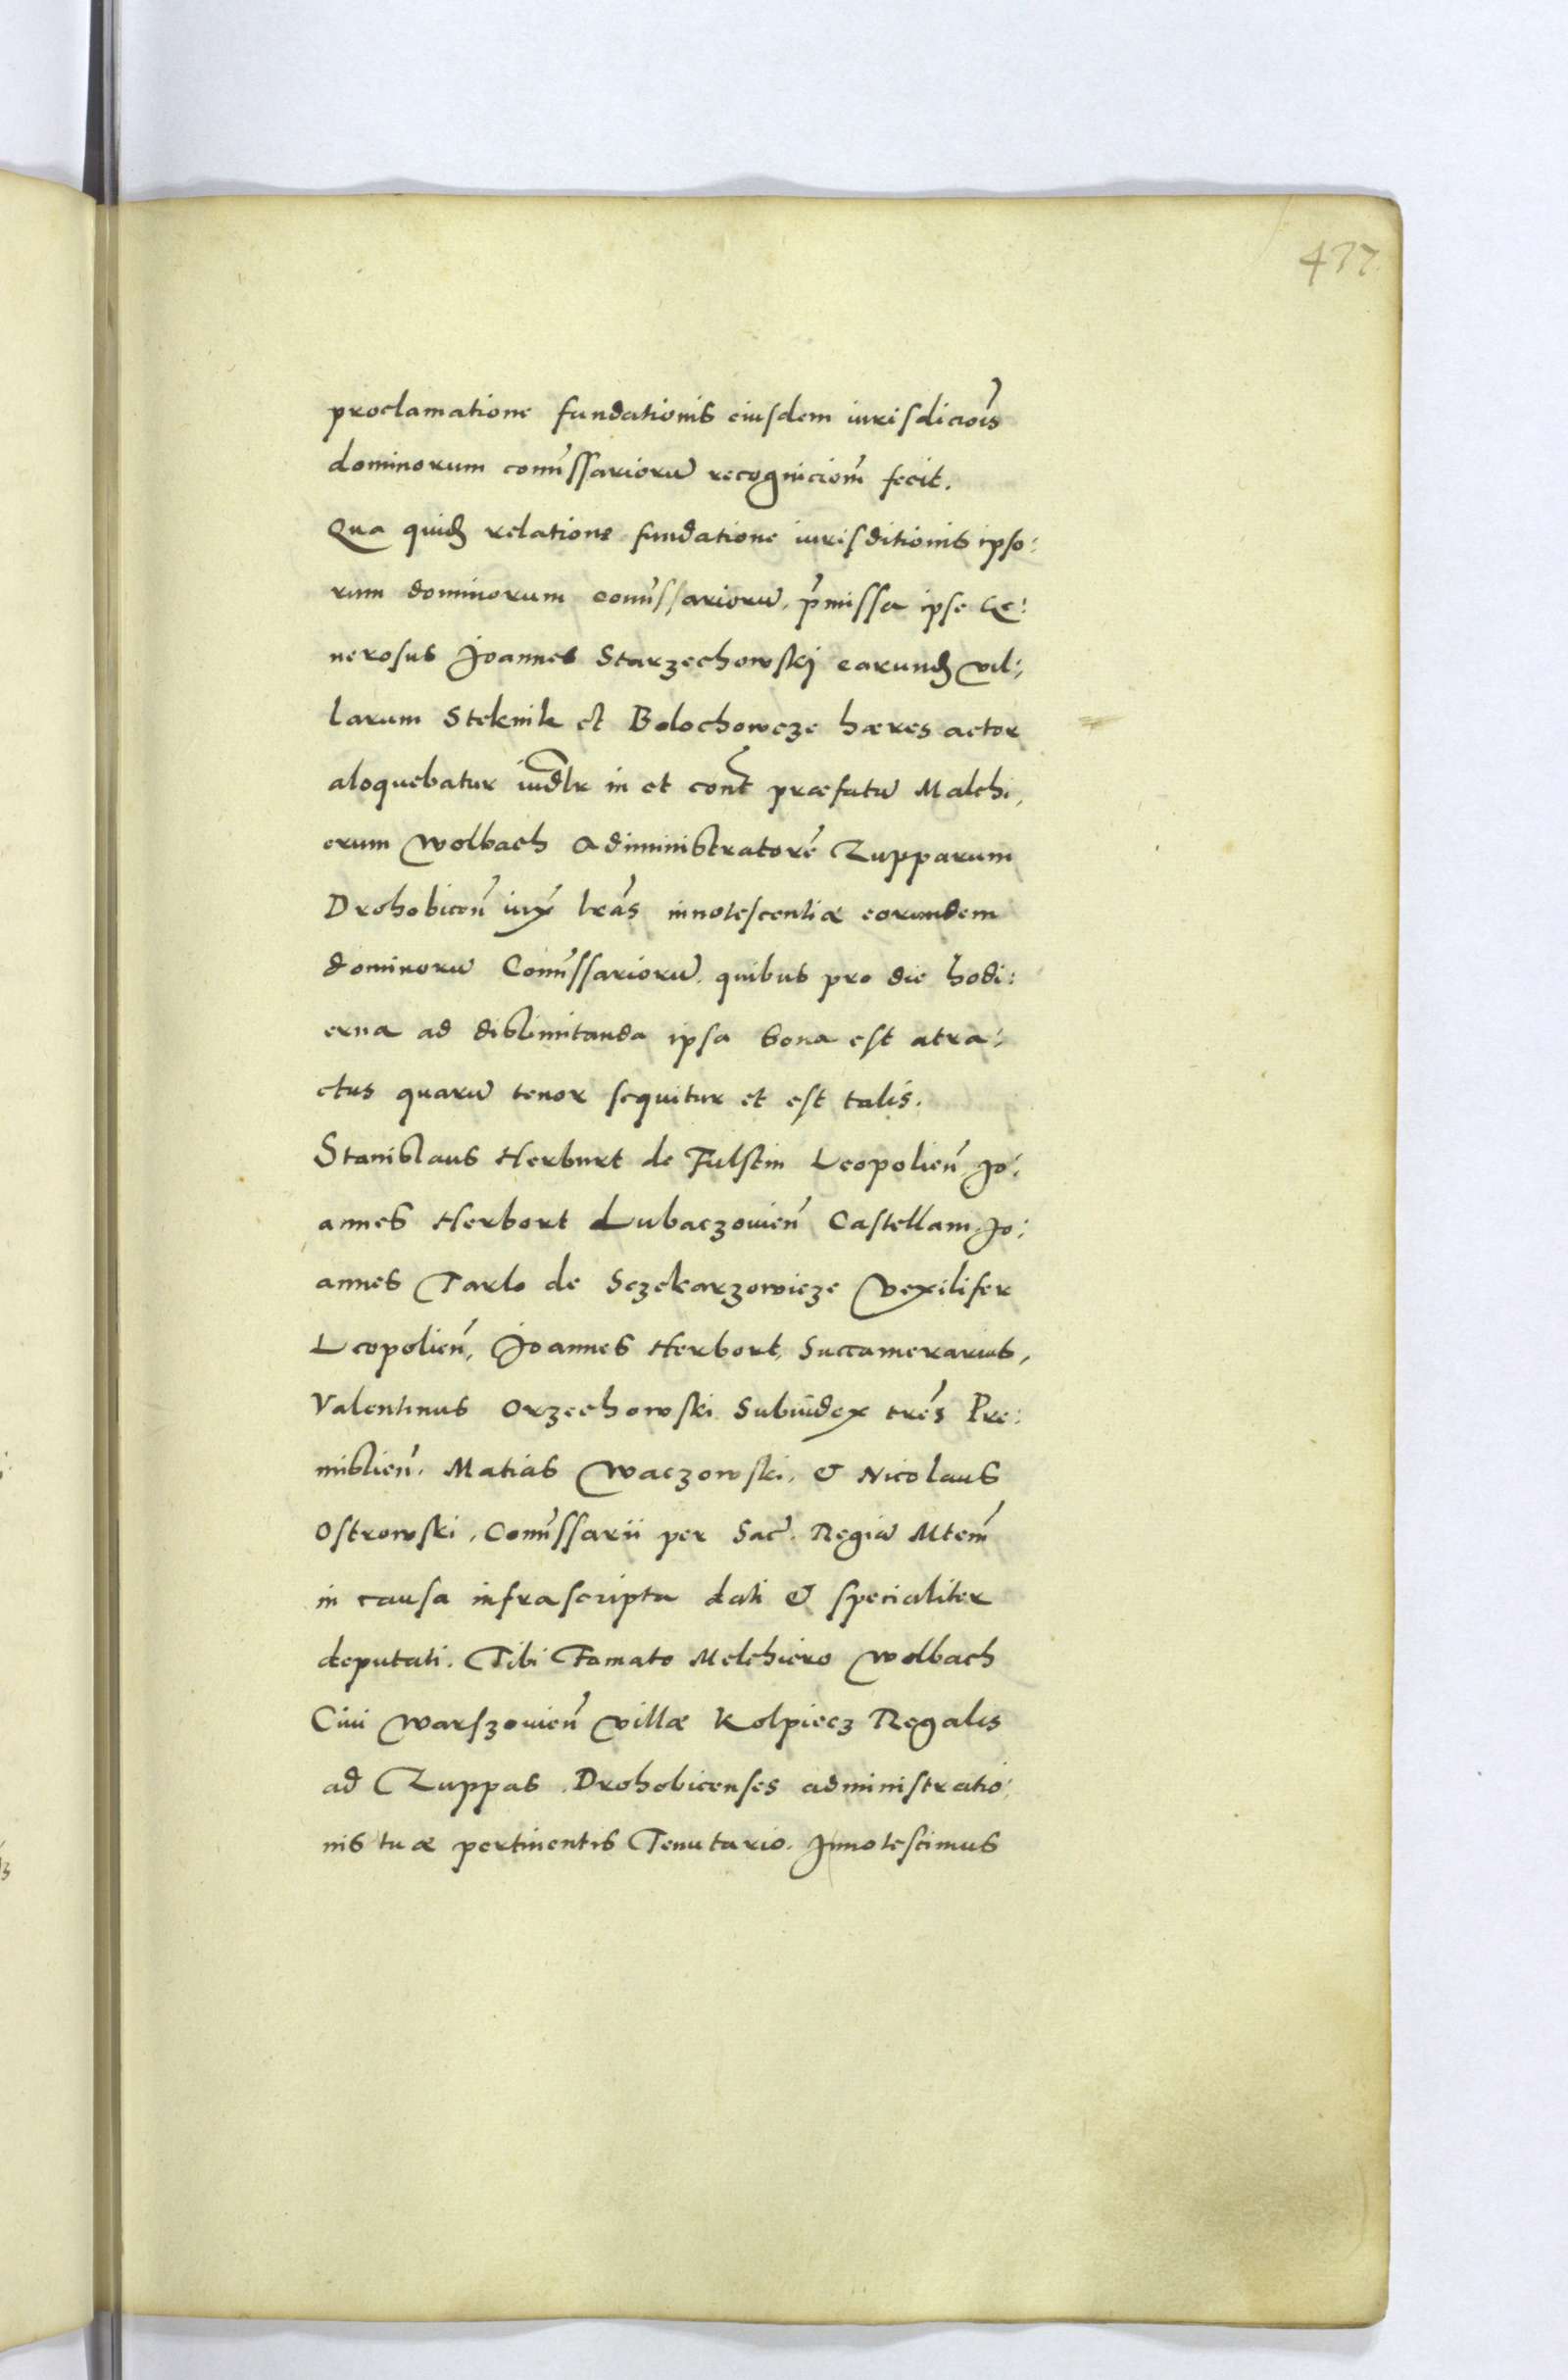 477
proclamatione fundationis eiusdem iurisdicio͠is
dominorum com̃ssariorũ recognicio͠m fecit.
Qua quidẽ relatione fundatione iurisditionis ipso:
rum dominorum com̃ssariorũ, p̃missa ipse Ge:
nerosus Joannes Starzechowskj earundẽ vil:
larum Steknik et Bolochowcze hæres actor
aloquebatur iudlr in et cont̃ præfatũ Malchi,
erum Wolbach Adiministratorẽ Zupparum
Drohobiceñ iux̃ lr̃as innotescentiæ eorumdem
dominorũ Com̃ssariorũ, quibus pro die hodi:
erna ad dislimitanda ipsa bona est atra:
ctus quarũ tenor sequitur et est talis.
Stanislaus Herburt de Fulstin Leopolieñ, Jo:
annes Herbort Lubaczovieñ Castellani, Jo:
annes Tarlo de Sczekarzowicze Vexilifer
Leopolieñ, Joannes Herbort, Succamerarius,
Valentinus Orzechowski Subiudex trẽs Pre:
mislieñ. Matias Waczowski, & Nicolaus
Ostrowski, Com̃ssarii per Sac̃. Regiã Mtem̃
in causa infrascripta dati & specialiter
deputati. Tibi Famato Melchiero Wolbach
Civi Warszovieñ villæ Kolpiecz Regalis
ad Zuppas Drohobicenses administratio:
nis tuæ pertinentis Tenutario. Innotescimus